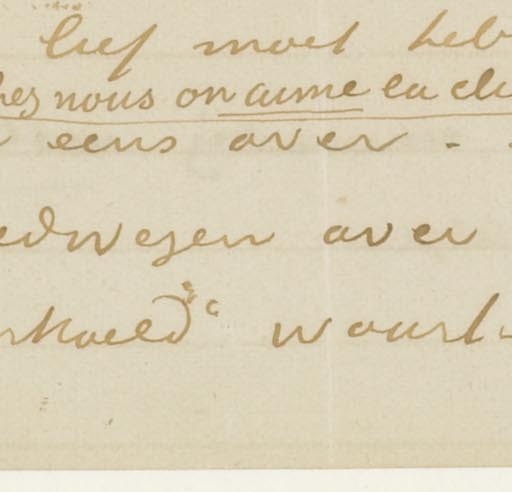 lief moet heb
hez nous on aime la cla
eens over - -
edwegen over
rkoeld" waarl